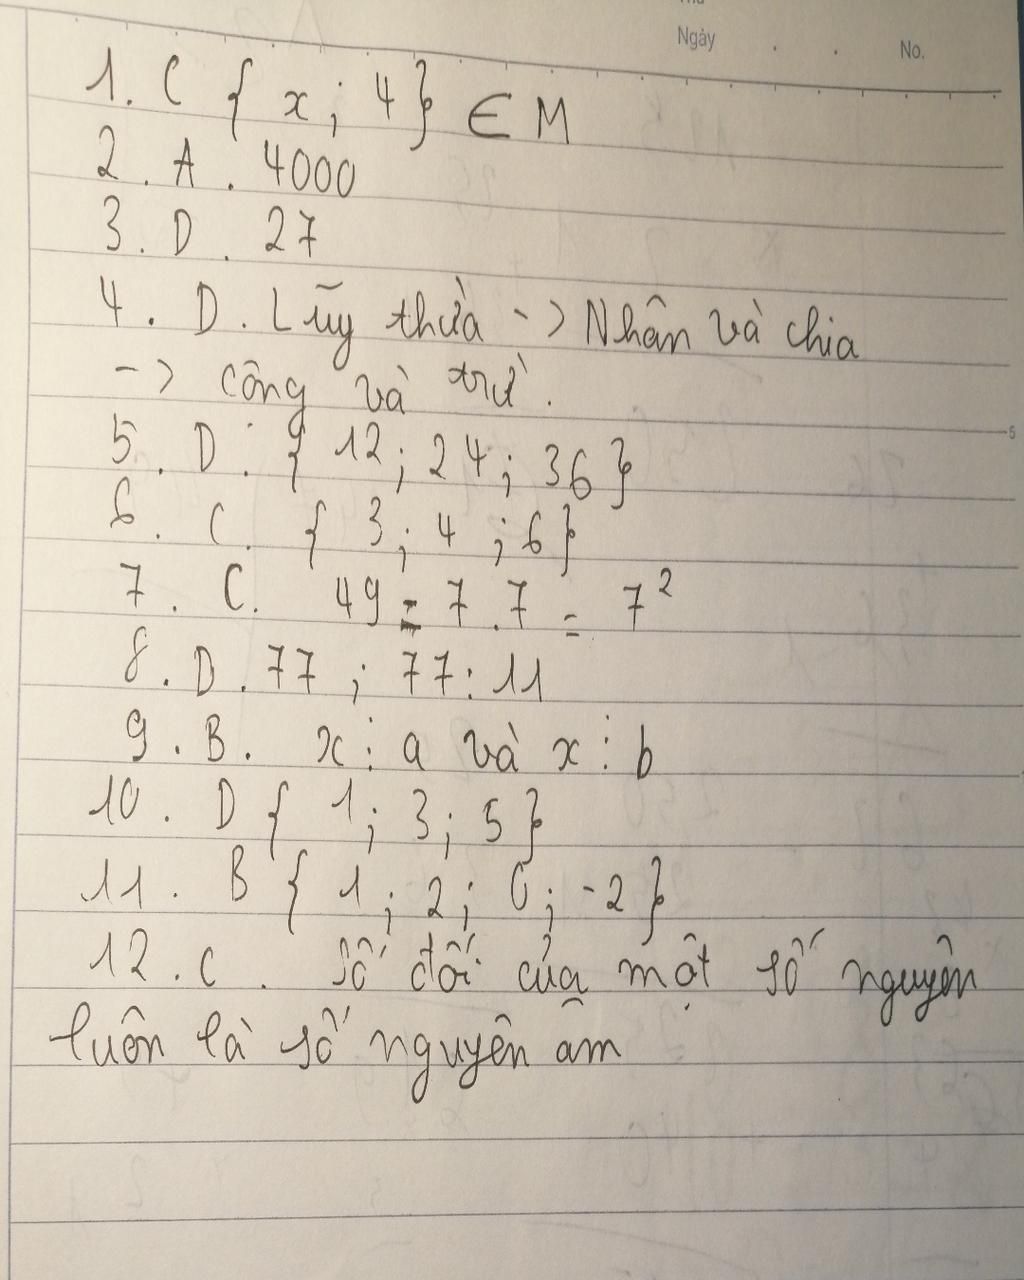 Ngày . . No.
1. C { x ; 4 } ∈ M
2 . A . 4000
3 . D . 27
4 . D . Lũy thừa -> Nhân và chia
-> cộng và trừ .
5 . D . { 12 ; 24 ; 36 }
6 . C . { 3 ; 4 ; 6 }
7 . C . 49 = 7 . 7 = 7²
8 . D . 77 ; 77 : 11
9 . B . x ⋮ a và x ⋮ b
10 . D { 1 ; 3 ; 5 }
11 . B { 1 ; 2 ; 0 ; -2 }
12 . C . Số đối của một số nguyên
luôn là số nguyên âm